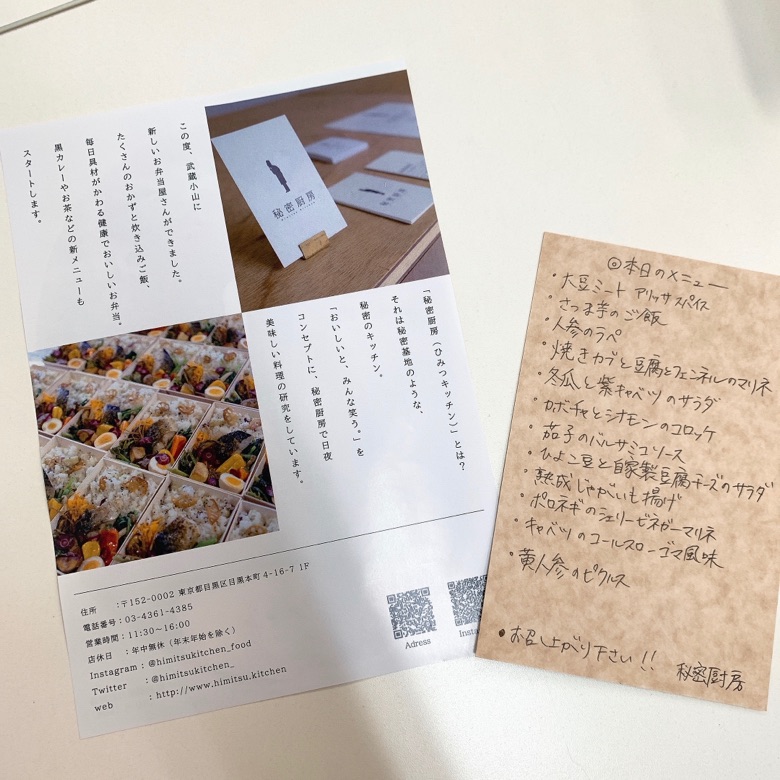 この度、武蔵小山に
新しいお弁当屋さんができました。
たくさんのおかずと炊き込みご飯、
毎日具材がかわる健康でおいしいお弁当。
黒カレーやお茶などの新メニューも
スタートします。
秘密厨房
秘密厨房
「秘密厨房（ひみつキッチン）」とは？
それは秘密基地のような、
秘密のキッチン。
「おいしいと、みんな笑う。」を
コンセプトに、秘密厨房で日夜
美味しい料理の研究をしています。
住所 :〒152-0002 東京都目黒区目黒本町 4-16-7 1F
電話番号:03-4361-4385
営業時間:11:30~16:00
店休日 :年中無休（年末年始を除く）
Instagram : @himitsukitchen_food
Twitter : @himitsukitchen_
web : http://www.himitsu.kitchen
Adress
Insta
◎本日のメニュー
・大豆ミート アリッサスパイス
・さつま芋のご飯
・人参のラペ
・焼きカブと豆腐とフェンネルのマリネ
・冬瓜と紫キャベツのサラダ
・カボチャとシナモンのコロッケ
・茄子のバルサミコソース
・ひよこ豆と自家製豆腐チーズのサラダ
・熟成じゃがいも揚げ
・ポロネギのシェリービネガーマリネ
・キャベツのコールスローゴマ風味
・黄人参のピクルス
●お召し上がり下さい!!
秘密厨房